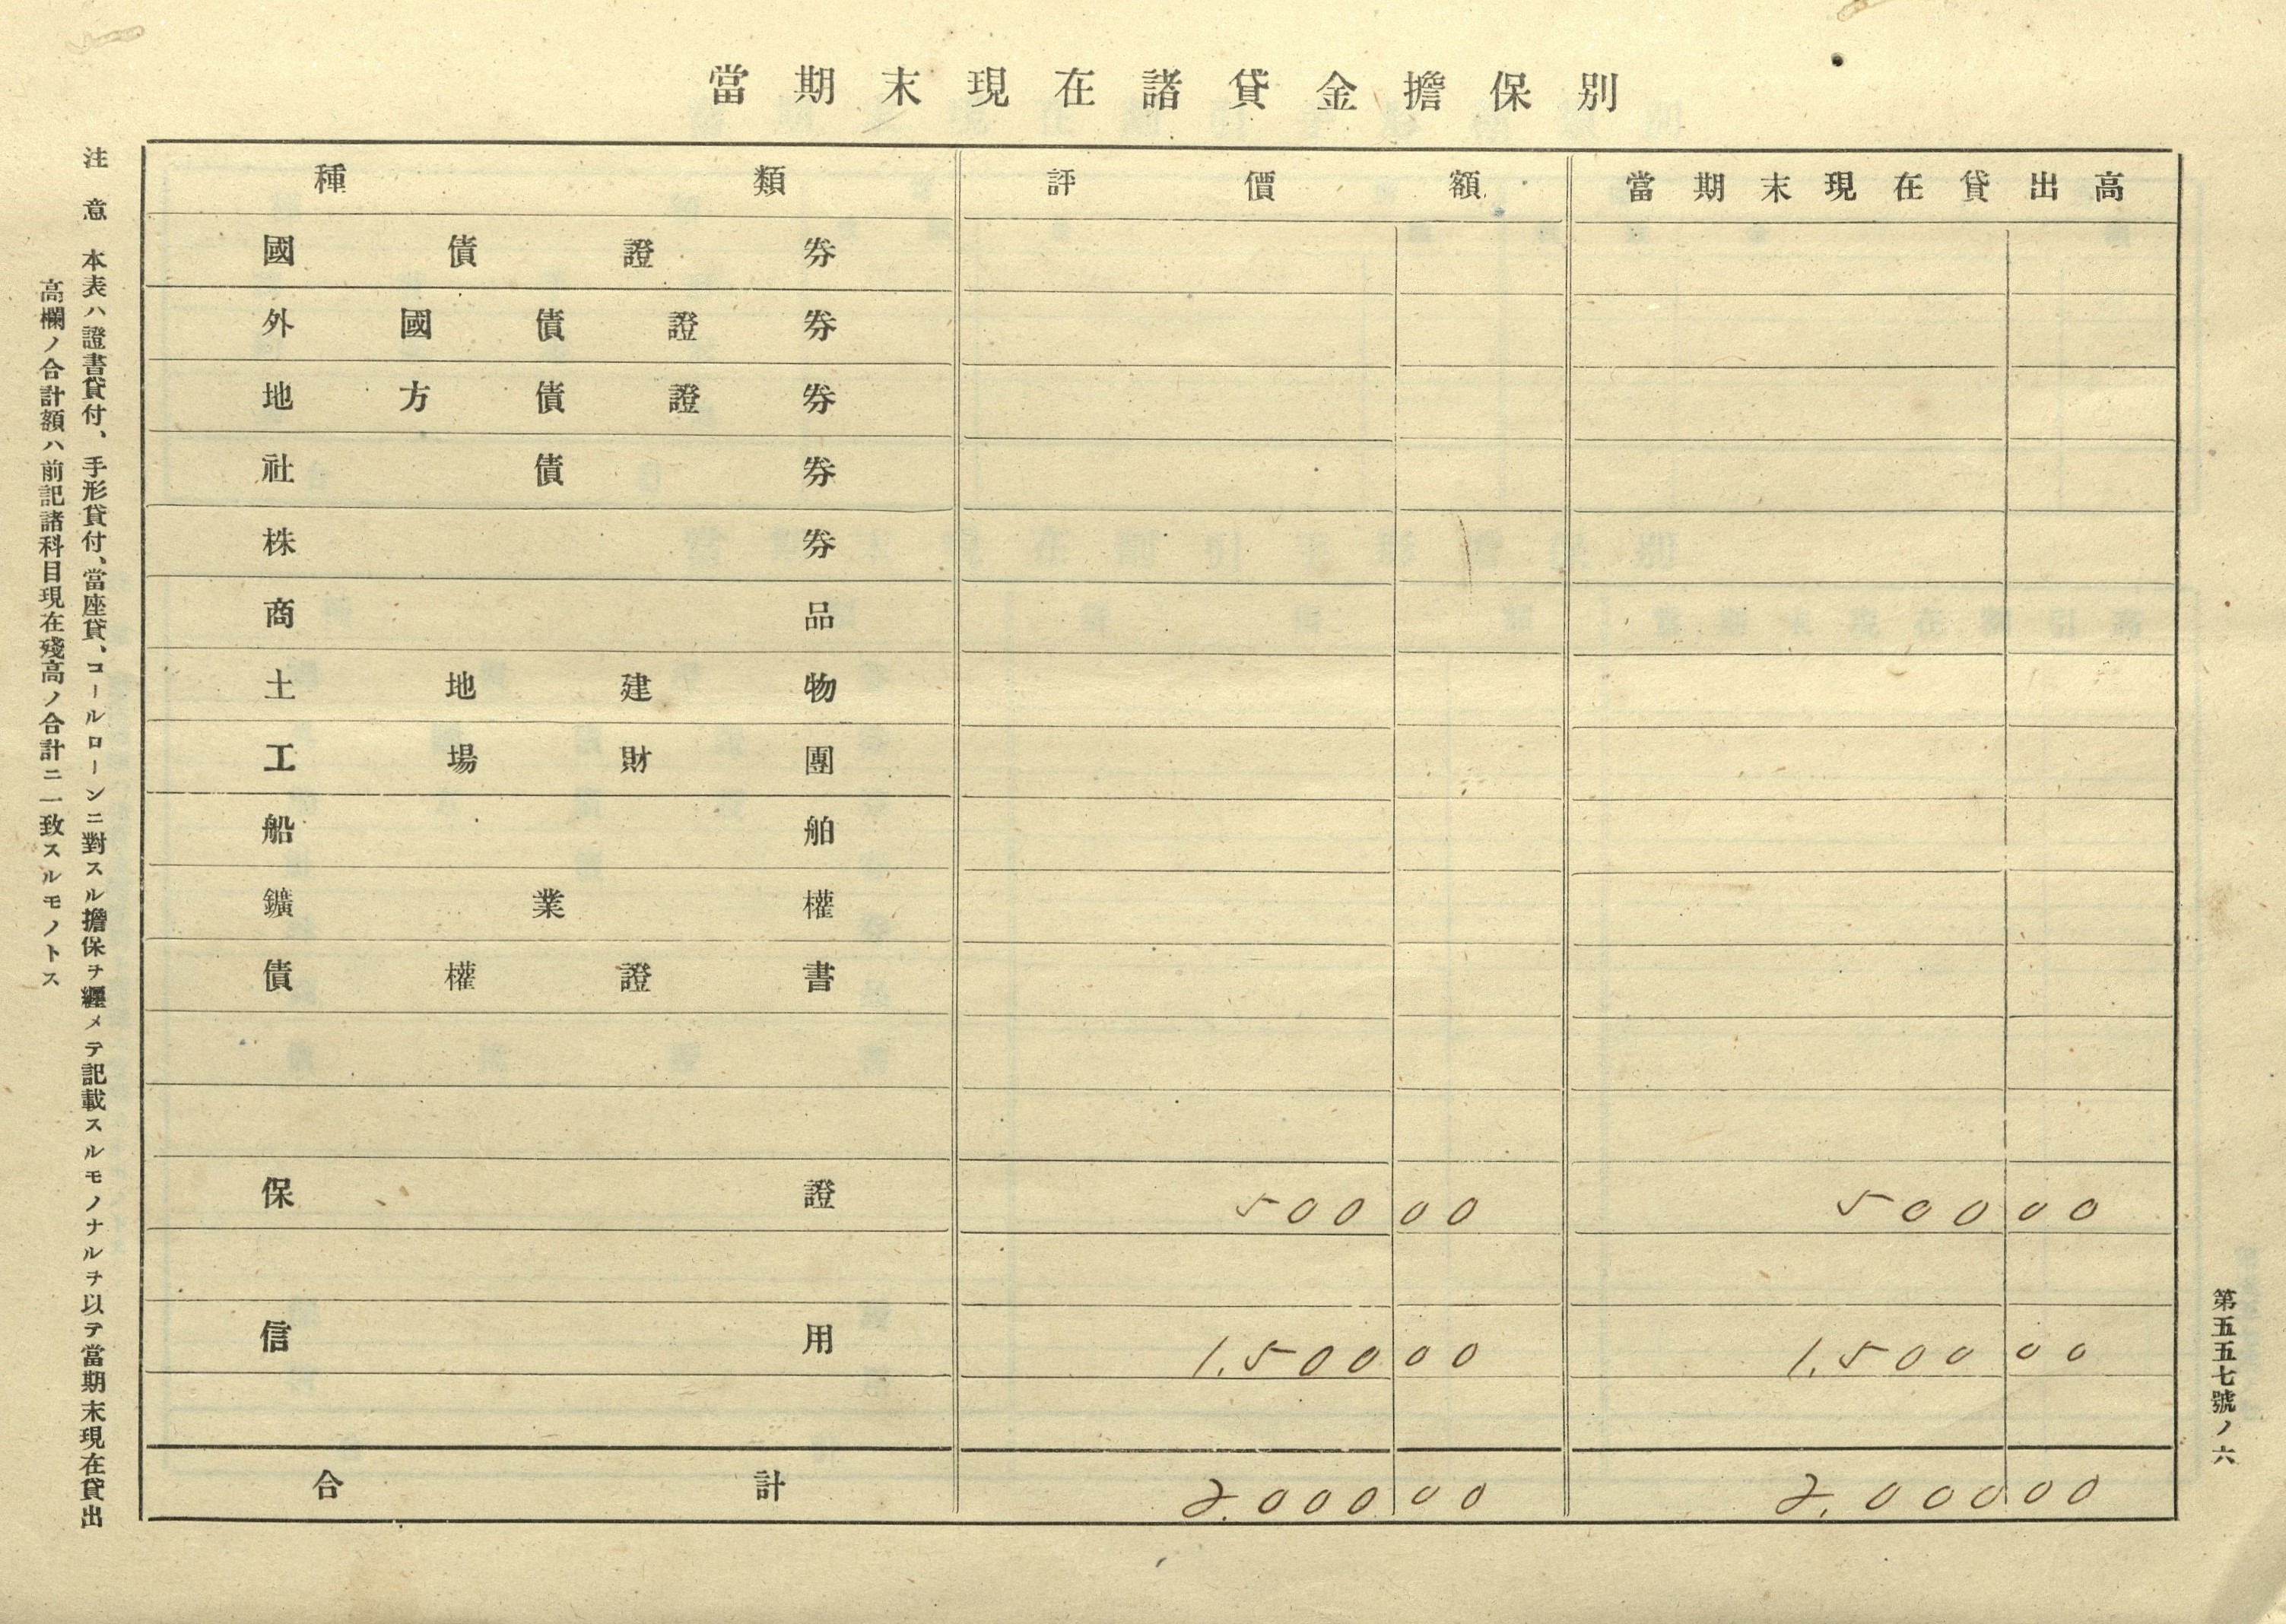 當期末現在諸貸金擔保別
種類 評價額 當期末現在貸出高
國債證券
外國債證券
地方債證券
社債券
株券
商品
土地建物
工場財團
船舶
鑛業權
債權證書
保證 500 00 500 00
信用 1,500 00 1,500 00
合計 2,000 00 2,000 00
注意 本表ハ證書貸付、手形貸付、當座貸、コールローンニ對スル擔保ヲ纒メテ記載スルモノナルヲ以テ當期末現在貸出
高欄ノ合計額ハ前記諸科目現在殘高ノ合計ニ一致スルモノトス
第五五七號ノ六